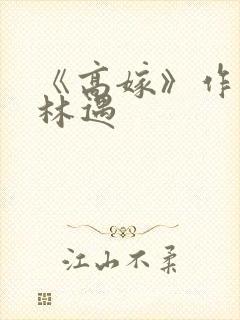 《高嫁》作
林遇
江山不柔